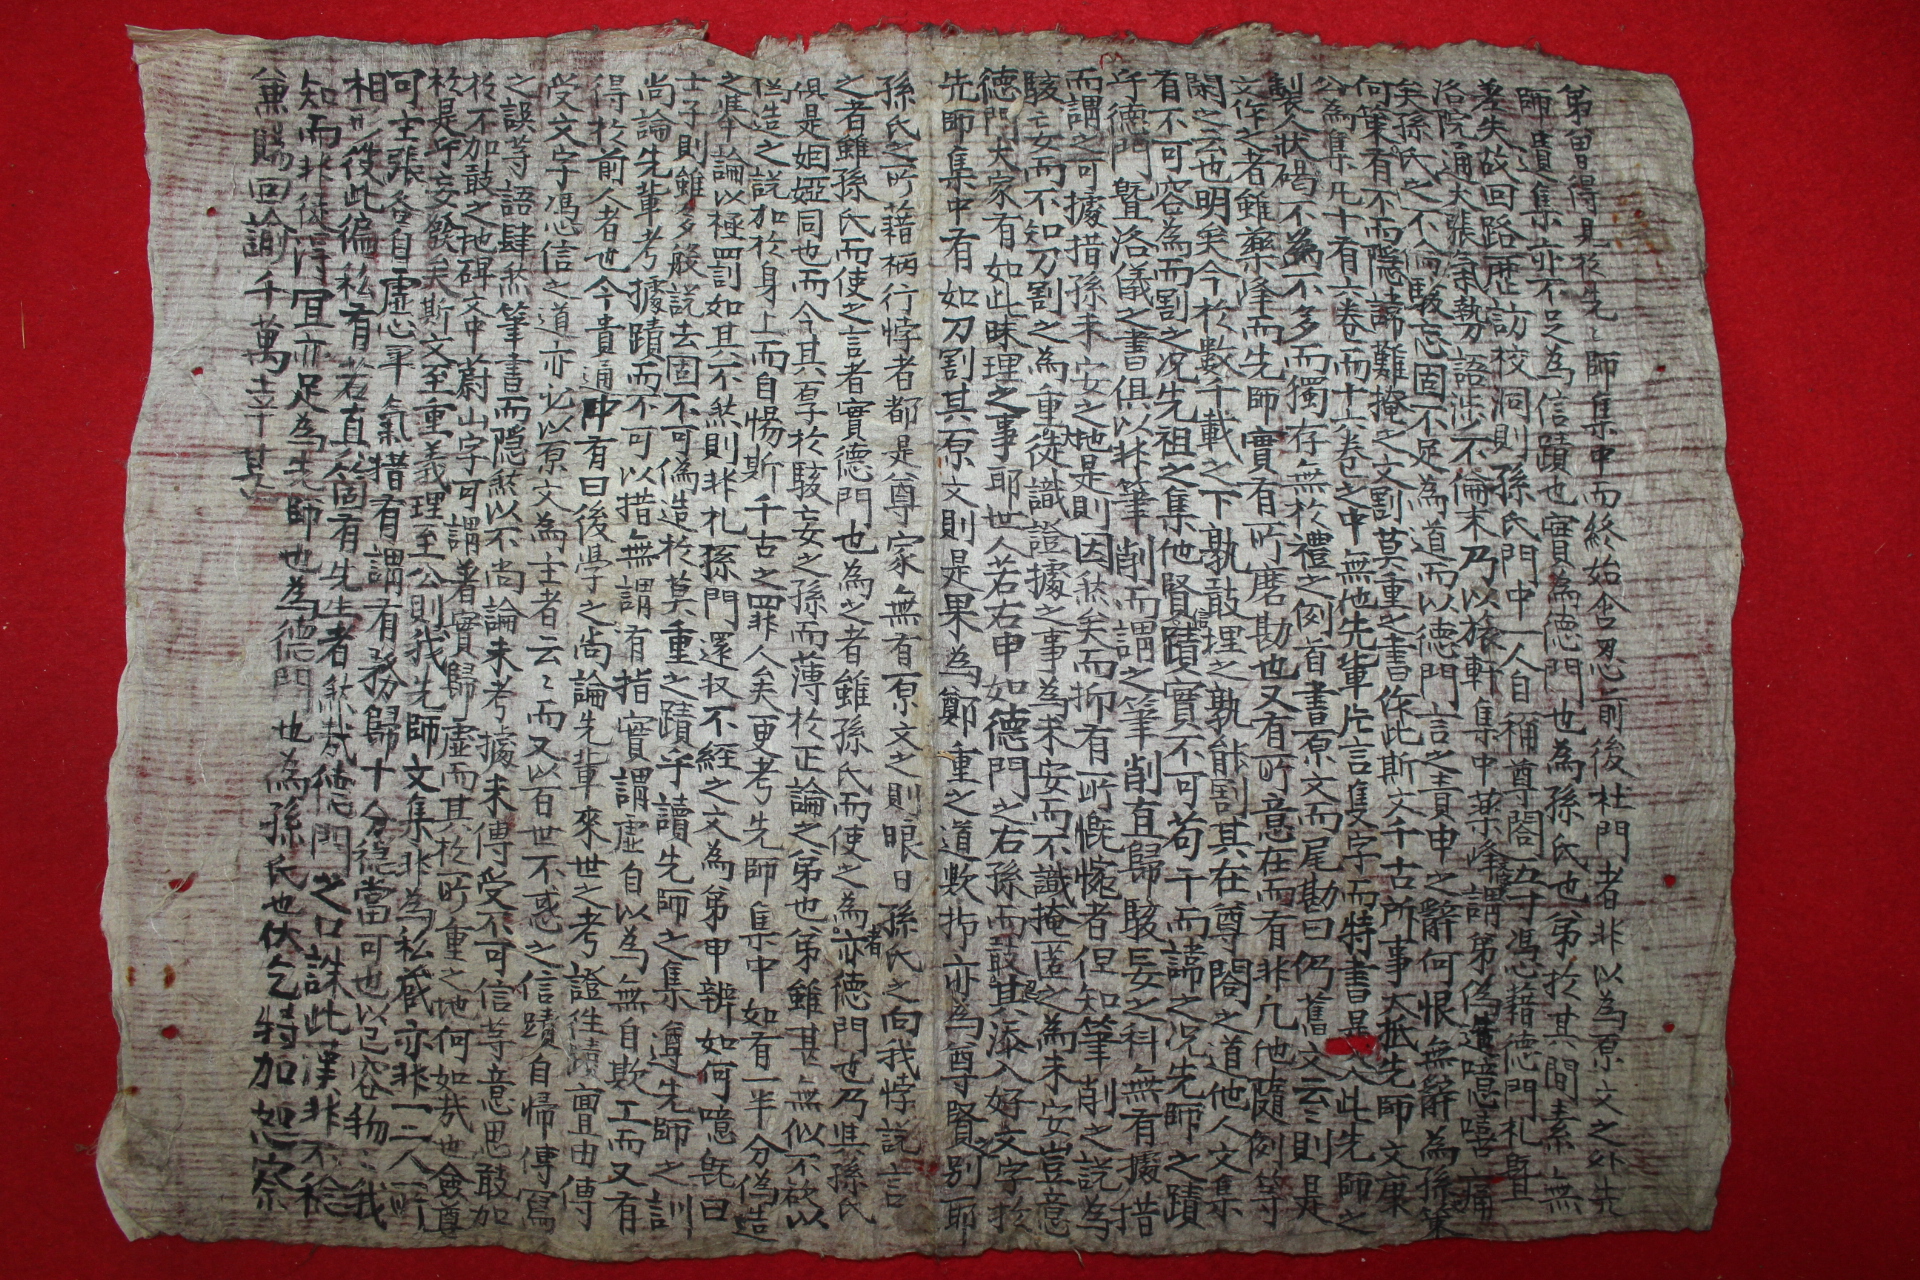 第留日得見於先師集中而終始含忍前後杜門者非以為原文之外先
師遺集亦不足為信蹟也實為德門也為孫氏也弟於其間素無
差失故回路歷訪校洞則孫氏門中一人自稱尊閤丑子馮藉德門札曁
洛院通大張氣勢語涉不倫末乃以旅軒集中藥峰謂弟偽造噫嘻痛
矣孫氏之不今駭忘固不足為道而以德門言之責申之辭何恨無辭為孫策
何策有不而隱諱難掩之文割莫重之書作此斯文千古所事大抵先師文稟
公為集凡十有六卷而十六卷之中無他先輩片言隻字而特書是入此先師之
製人狀碣不為不多而獨存無於禮之例首書原文而尾勘曰仍舊文云則是
文作之者雖藥峰而先師實有所磨勘也又有所意在而有非凡他隨例等
閑之云也明矣今於數千載之下孰敢埋之孰能割其在尊閤之道他人文集
有不可容為而割之况先祖之集他賢蹟實不可苟干而諱之况先師之蹟
乎德門曁洛儀之書俱以非筆削而謂之筆削直歸駭妄之科無有據措
而謂之可據措孫未安之地是則因然矣而抑有所慨惋者但知筆削之說為
駭妄而不知刀割之為重徒識證據之事為未安而不識掩匿之為未安豈意
德門大家有如此昧理之事耶世人若右申如德門之右孫而敢其添入好文字於
先師集中有如刀割其原文則是果為鄭重之道歟抑亦為尊賢之別耶
孫氏之所藉柄行悖者都是尊家無有原文之則眼日孫氏之向我悖說言
之者雖孫氏而使之言者實德門也為之者雖孫氏而使之為者亦德門也乃其孫氏
俱是姻婭同也而今其厚於駭妄之孫而薄於正論之弟也弟雖甚無似不欲以
偽造之說加於身上而自惕斯千古之罪人矣更考先師集中如有一半分偽造
之舉論以極罰如其不然則非札孫門還収不經之文為弟申辨如何噫旣曰
士子則雖多般說去固不可偽造於莫重之蹟乎讀先師之集尊先師之訓
尚論先輩考據蹟而不可以措無謂有指實謂虛自以為無自欺工而又有
得於前人者也今貴通中有曰後學之尚論先輩來世之考證往蹟亶由傳
受文字馮信之道亦必以原文為主者云云而又以百世不惑之信蹟自帰傳寫
之誤等語肆然筆書而隱然以不尚論未考據未傳受不可信等意思敢加
於不加敢之地碑文中蔚山字可謂著實歸虛而其於所重之地何如哉也僉尊
於是乎妄發矣斯文至重義理至公則我先師文集非為私藏亦非一二人所
可士張各自虛心平氣措有謂有務歸十分穩當可也以已容物我
相形彼此偏私有若直箇有先生者然哉德門之口誅此漢非不稔
知而非徒得罝亦足為先師也為德門也為孫氏也伏乞特加恕察
兼賜回諭千萬幸甚